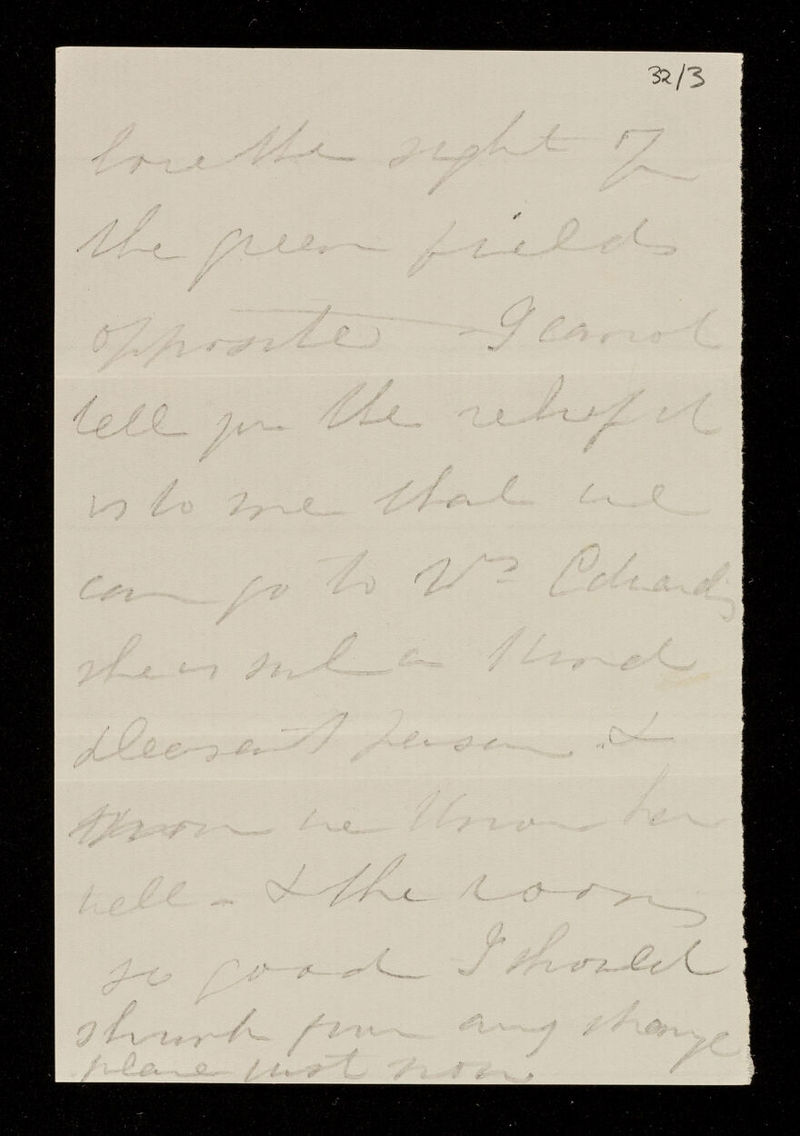 32/3
love the sight of
the green fields
opposite - I cannot
tell you the relief it
is to me that we
can go to Mrs Edwards
she is such a kind
pleasant person &
we know her
well - & the rooms
so good I should
shrink from any strange
place just now.